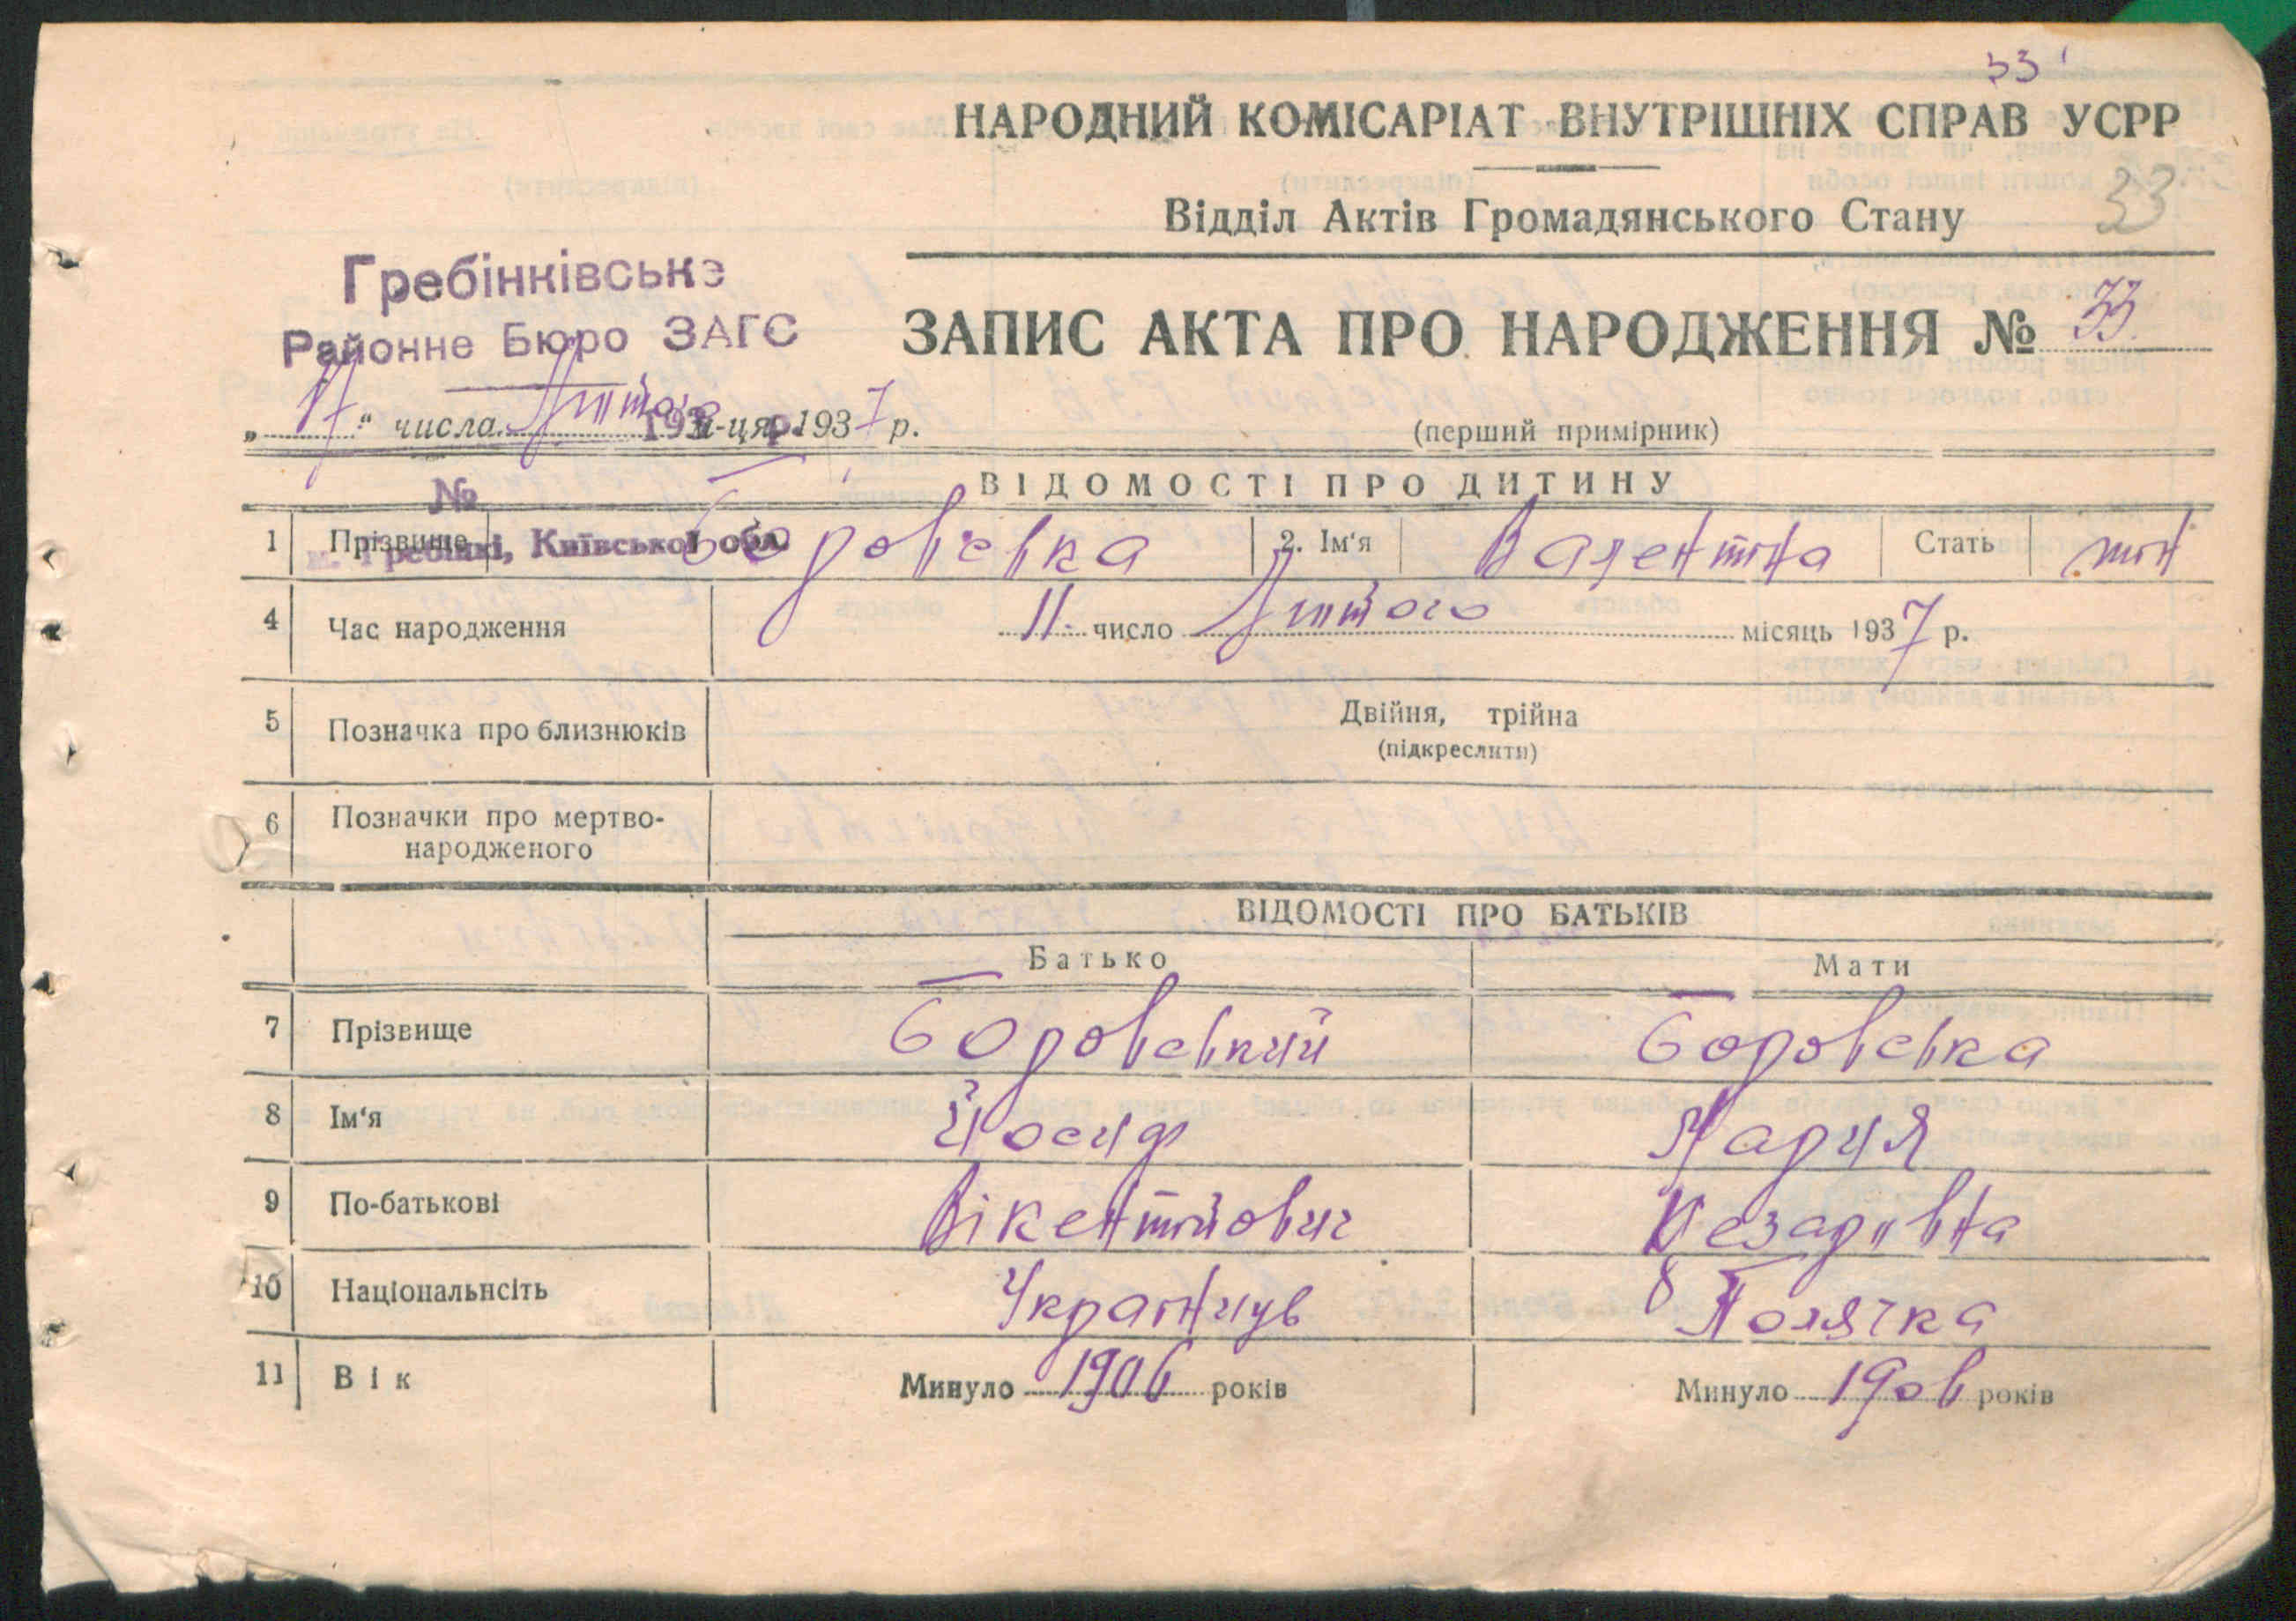 33
НАРОДНИЙ КОМІСАРІАТ ВНУТРІШНІХ СПРАВ УСРР
Відділ Актів Громадянського Стану 33
Гребінківське
Районне Бюро ЗАГС
ЗАПИС АКТА ПРО НАРОДЖЕННЯ № 33
„17“ числа Лютого м-ця 1937 р.
193 р.
(перший примірник)
№
м. Гребінкі, Київської обл.
ВІДОМОСТІ ПРО ДИТИНУ
1 Прізвище Боровська 2. Ім‘я Валентина Стать жін
4 Час народження 11. число Лютого місяць 1937 р.
5 Позначка про близнюків Двійня, трійна
(підкреслити)
6 Позначки про мертво-
народженого
ВІДОМОСТІ ПРО БАТЬКІВ
Батько Мати
7 Прізвище Боровський Боровська
8 Ім‘я Йосиф Мария
9 По-батькові Вікентійович Цезарівна
10 Національнсіть Українець Полячка
11 Вік Минуло 1906 років Минуло 1906 років